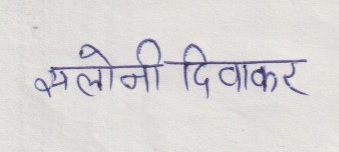 सलोनी दिवाकर